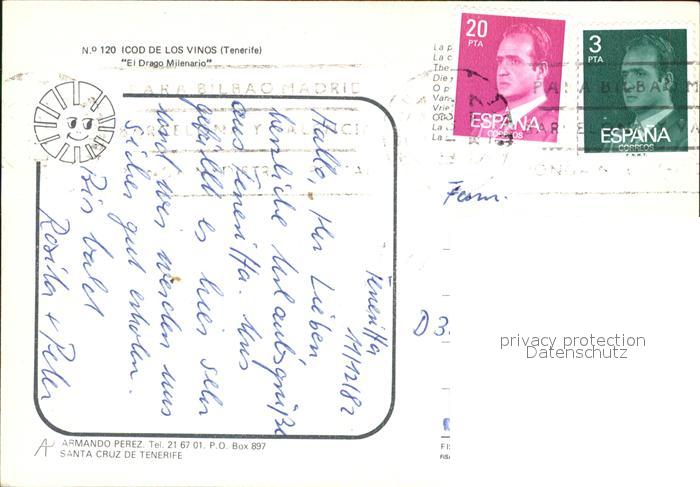 N.º 120 ICOD DE LOS VINOS (Tenerife)
"El Drago Milenario"
20
PTA
ESPAÑA
CORREOS
3
PTA
ESPAÑA
CORREOS
F.N.M.T.
PARA BILBAO MADRID
Teneriffa
11/12/82
Hallo, Ihr Lieben
herzliche Urlaubsgrüße
aus Teneriffa. Uns
gefällt es hier sehr
und wir werden uns
sicher gut erholen.
Bis bald
Rosita + Peter
Fam.
D 3
privacy protection
Datenschutz
ARMANDO PEREZ. Tel. 21 67 01. P.O. Box 897
SANTA CRUZ DE TENERIFE